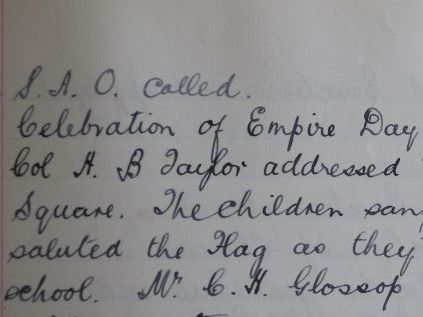 S. A. O. called.
Celebration of Empire Day
Col H. B Taylor addressed
Square. The children san
saluted the Flag as they
school. Mr C. H. Glossop